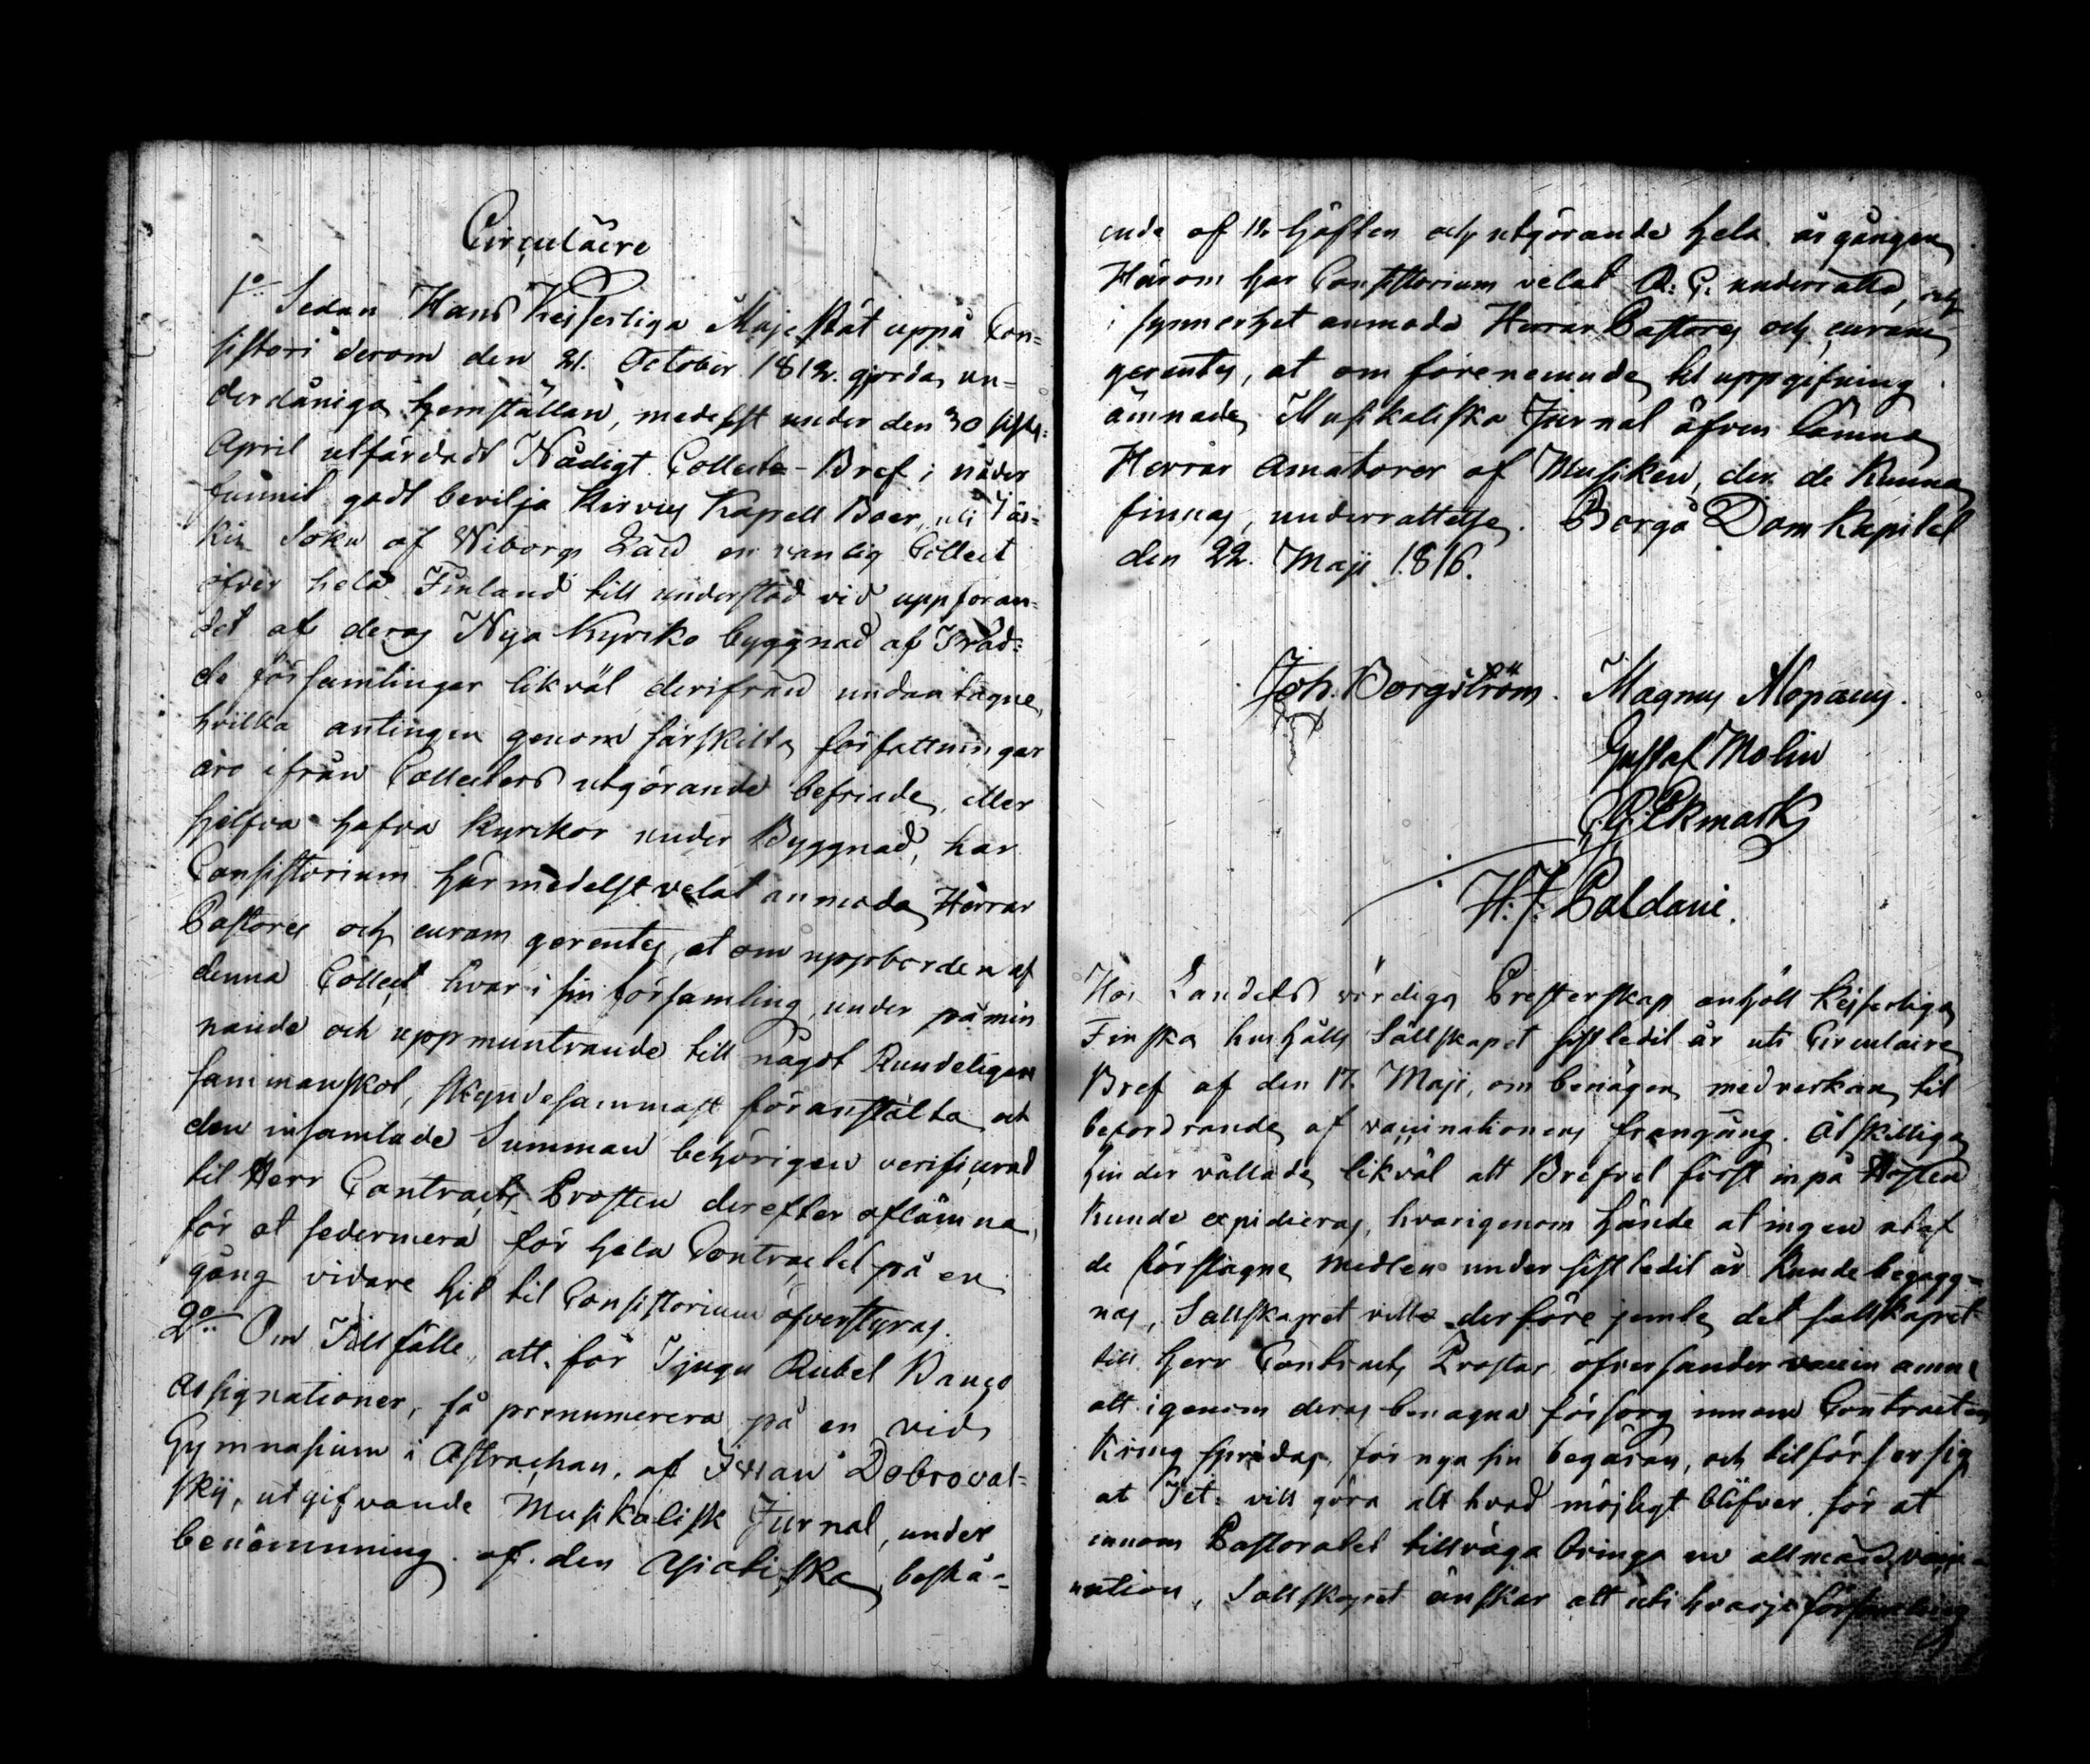 Circulaire
1:o Sedan Hans Kejserliga Majestät uppå Con-
sistorii derom den 21. October 1812. gjorda un-
derdåniga hemställan, medelst under den 30 sistl:
April utfärdadt Nådigt Collecte-Bref i nåder
funnit godt bevilja Kirvus Kapell Boer, uti Jäs-
kis Sokn af Wiborgs Län en vanlig Collect
öfver hela Finland till understöd vid uppföran-
det af deras Nya Kyrko byggnad af Träd:
de församlingar likväl derifrån undantagne,
hvilka antingen genom särskilta författningar
äro ifrån Collecters utgörande befriade, eller
sjelfva hafva Kyrkor under Byggnad, har
Consistorium härmedelst velat anmoda Herrar
Pastores och curam gerentes, at om uppbörden af
denna Collect hvar i sin församling, under påmin
nande och uppmuntrande till något Kundeligen
sammanskot, skyndesammast föranstalta och
den insamlade Summan behörigen verificerad
til Herr Contracts Prosten derefter aflämna,
för at sedermera för hela Contractet på en
gång vidare hit til Consistorium öfverstyras.
2:o Om Tillfälle, att för Tjugu Rubel Banco
Assignationer, få prenumerera på en vid
Gymnasium i Astrachan, af Iwan Dobrovol-
skij, utgifvande Musikalisk Jurnal, under
benämnning af den Asiatiska, bestå-
ende af 12 häften och utgörande hela årgången
Härom har Consistorium velat A: C: underrätta, och
i synnerhet anmoda Herrar Pastores och curam
gerentes, at om förenemnde til uppgifning
ämnade Musikaliska Jurnal äfven lämna
Herrar Amatörer af Musiken, der de kunna
finnas, underrättelse. Borgå Dom Kapitel
den 22. Maji 1816.
Joh. Borgström. Magnus Alopæus.
Gustaf Molin
G. G. Ekmark
H. J. Paldani.
Hos Landets värdiga Presterskap anhöll Kejserliga
Finska hushålls Sällskapet sistledit år uti Circulaire
Bref af den 17. Maji, om benägen medverkan til
befordrande af vaccinationens framgång. Åtskilliga
hinder vållade likväl att Brefvet först inpå Hösten
kunde expidieras, hvarigenom hände at ingen utaf
de förslagne medlen under sistledit år kunde begagg-
nas, Sällskapet ville derföre jemte det sällskapet
till Herr Contracts Prostar öfversänder vaccin ämne
att igenom deras benägna försorg innom Contracten
kring spridas, förnya sin begäran, och tilförser sig
at Det vill göra allt hvad möjligt blifver, för at
innom Pastoratet tillväga bringa en allmän vacci-
nation, Sällskapet önskar att uti hvarje församling